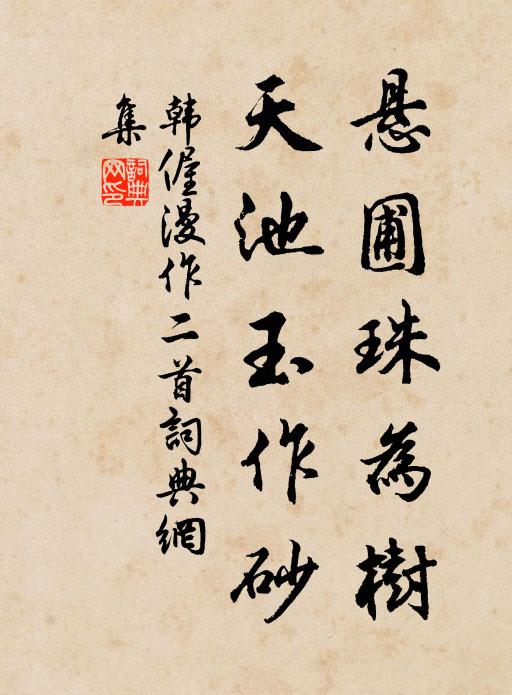 悬圃珠為樹
天池玉作砂
韩偓漫作二首詞典網
集
詞典网印